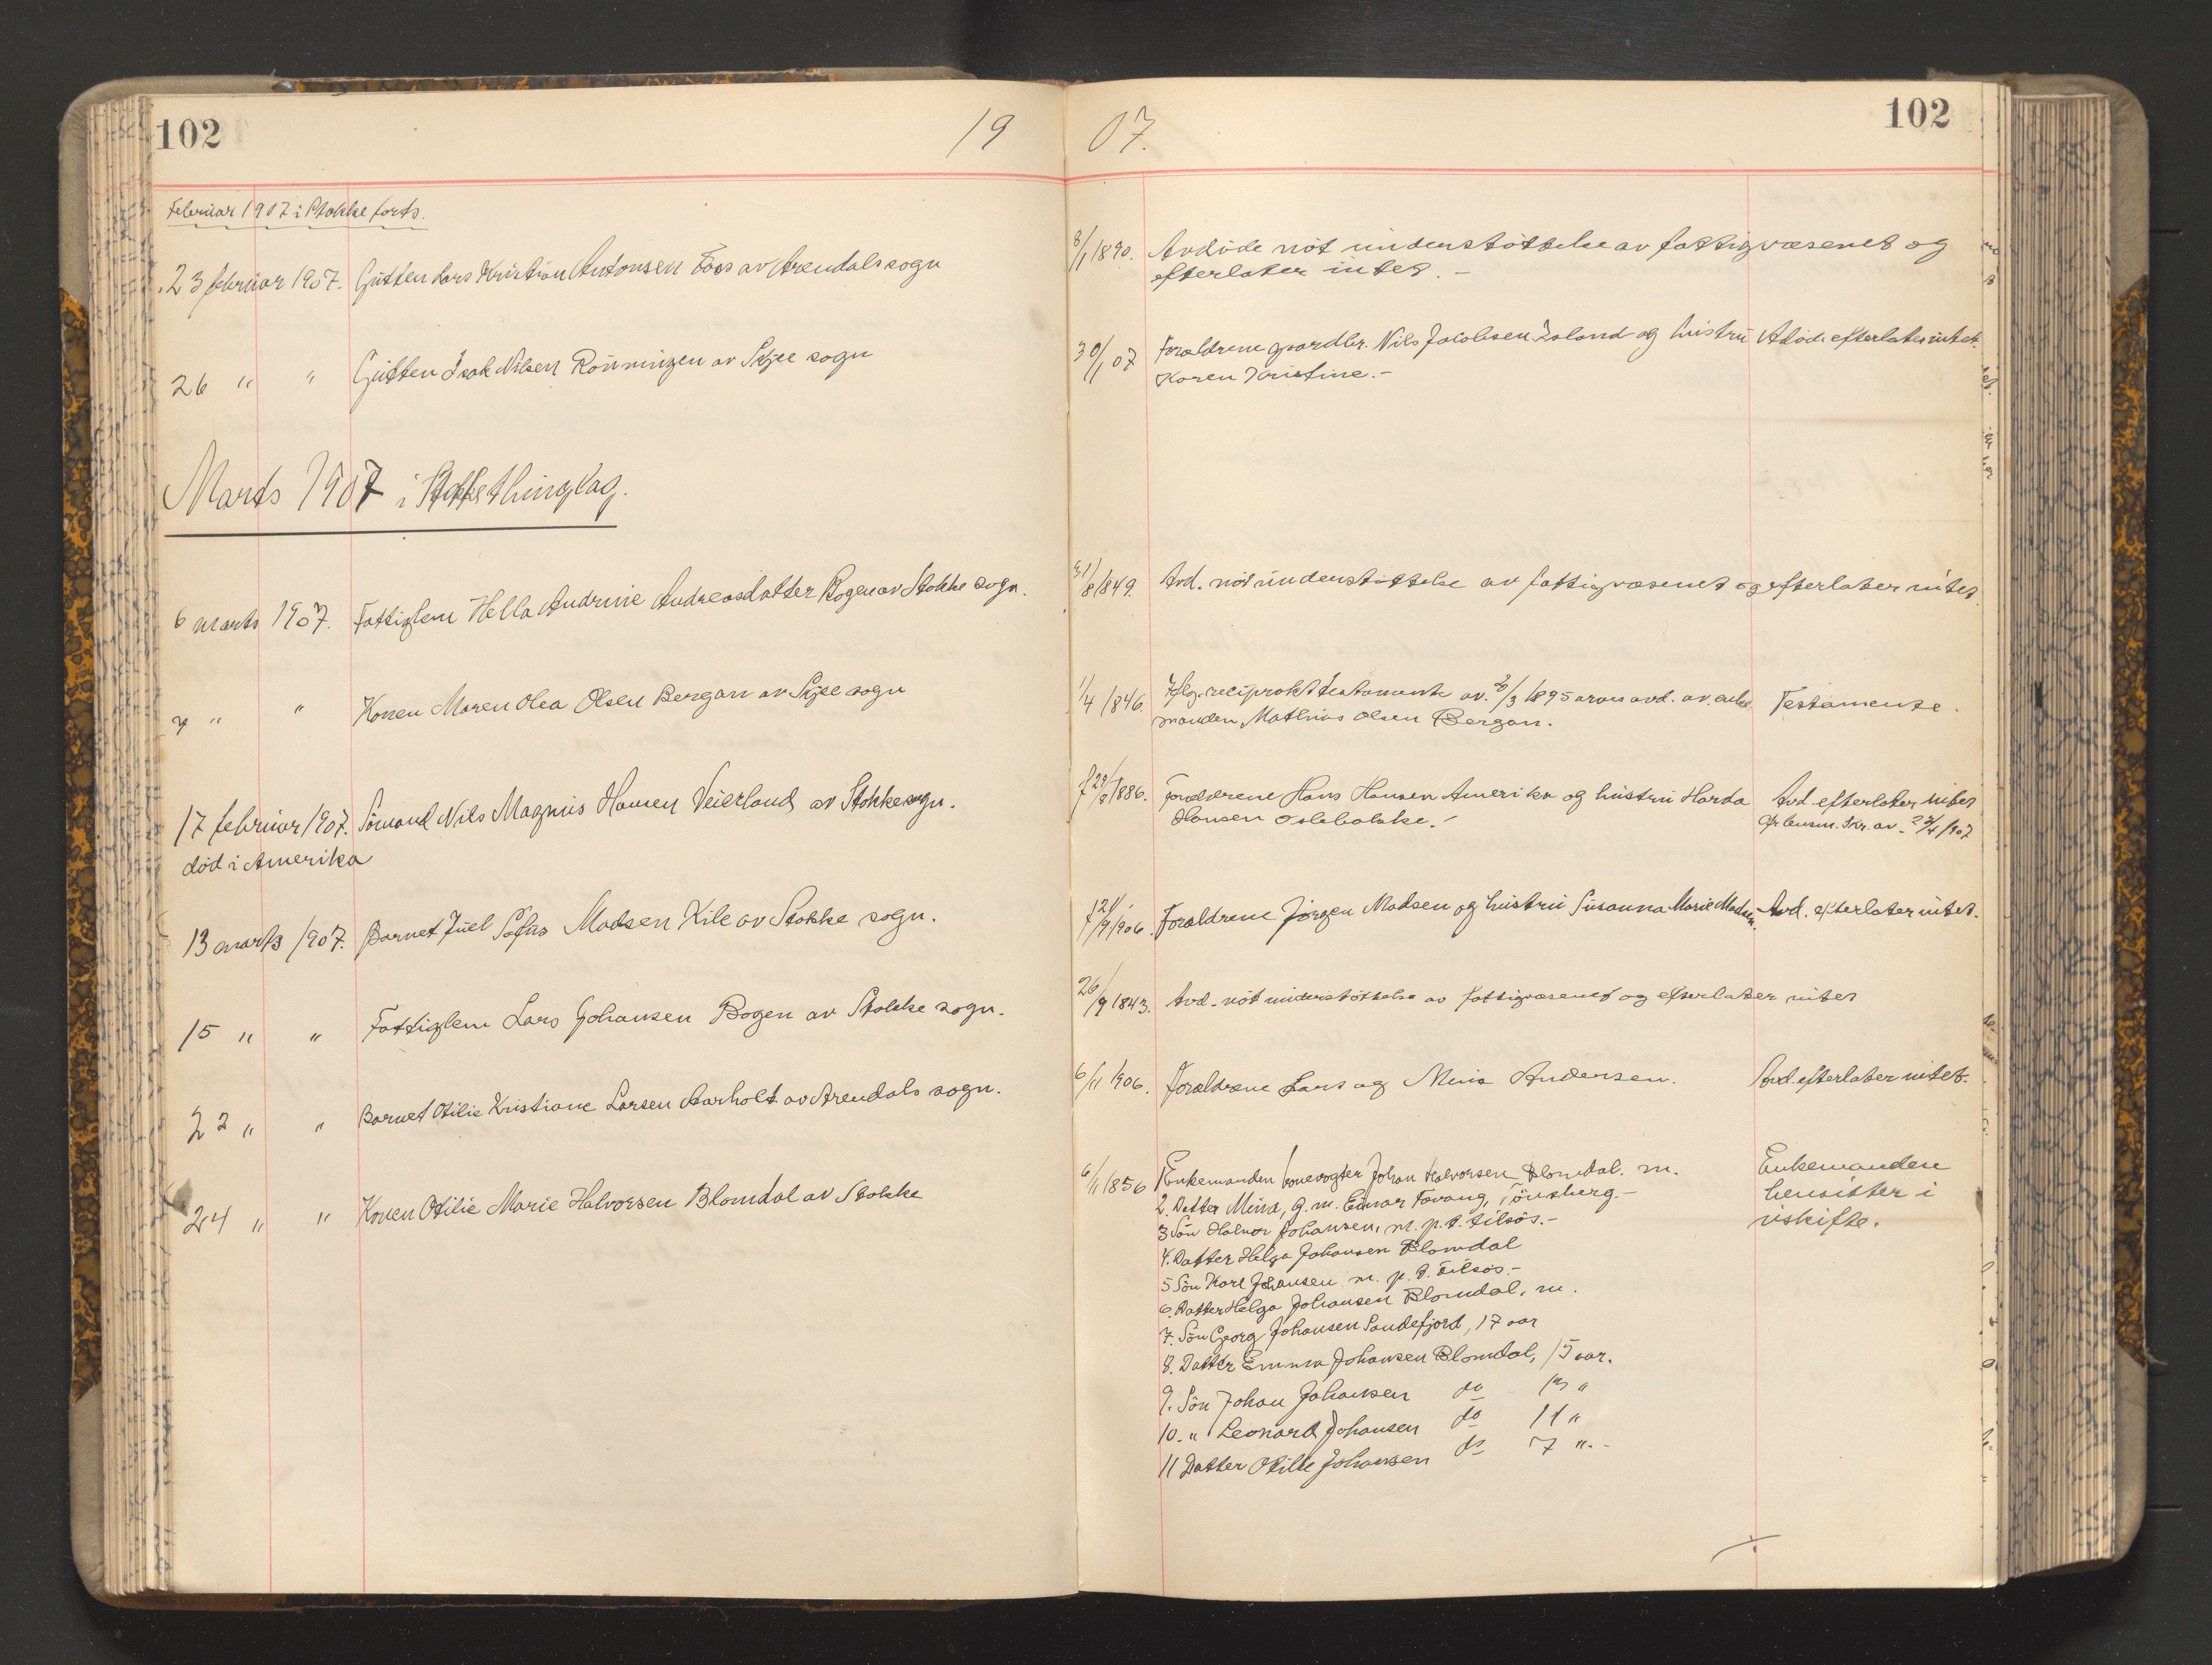 102
19 07.
102
Februar 1907 i Stokke forts.
23 februar 1907. Gutten Lars Kristian Antonsen Foss av Arendals sogn
8/1 1890. Avdøde nöt understöttelse av fattigvæsenet og
efterlater intet. -
26 " " Gutten Isak Nilsen Rönningen av Skjee sogn
30/1 07 Forældrene gaardbr. Nils Jacobsen Island og hustru
Karen Kristine. -
Avdøde efterlater intet.
Marts 1907 i Stokke thinglag.
6 marts 1907. Fattiglem Hella Andrine Andreasdatter Bogen av Stokke sogn.
31/8 1849. Avd. nöt understöttelse av fattigvæsenet og efterlater intet.
7 " " Konen Maren Olea Olsen Bergan av Skjee sogn
1/4 1846. Iflg. reciprokt testamente av /3 1895 arves avd. av enke
manden Mathias Olsen Bergan.
Testamente.
17 februar 1907. Sömand Nils Magnus Hansen Veierland av Stokke sogn.
død i Amerika
f 29/8 1886. Forældrene Hans Hansen Amerika og hustru
Hansen Oslebakke. -
Avd. efterlater intet
efr lensm. skr. av 23/4 1907
13 marts 1907. Barnet Juel Sofus Madsen Kile av Stokke sogn.
f 21/9 1906. Forældrene Jörgen Madsen og hustru Susanna Marie Madsen.
Avd. efterlater intet.
15 " " Fattiglem Lars Johansen Bogen av Stokke sogn.
26/9 1843. Avd. nöt understöttelse av fattigvæsenet og efterlater intet
22 " " Barnet Otilie Kristiane Larsen Aarholt av Arendals sogn.
6/11 1906. Forældrene Lars og Mina Andersen.
Avd. efterlater intet.
24 " " Konen Otilie Marie Halvorsen Blomdal av Stokke
6/11 1856 1 Enkemanden banevogter Johan Halvorsen Blomdal. m.
2. Datter Mina, g. m. Einar Tavang, Tönsberg. -
3 Sön Halvor Johansen, m. p. t. tilsös. -
4. Datter Helga Johansen Blomdal
5 Sön Karl Johansen m. p. t. Tilsös. -
6. Datter Helga Johansen Blomdal, m.
7. Sön Georg Johansen Sandefjord, 17 aar
8. Datter Emma Johansen Blomdal, 15 aar.
9. Sön Johan Johansen do 13 "
10. " Leonard Johansen do 11 "
11 Datter Otilie Johansen do 7 ". -
Enkemanden
hensitter i
uskifte.